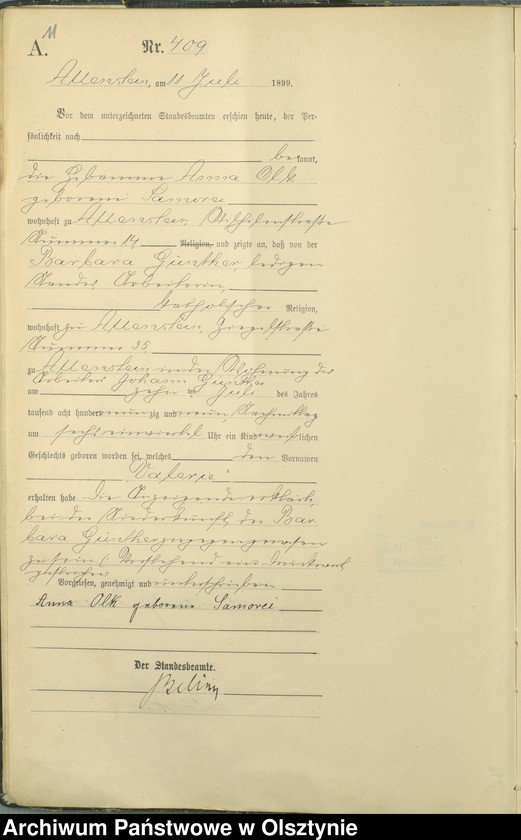 11
A.
Nr. 409
Allenstein, am 11 Juli 1899.
Vor dem unterzeichneten Standesbeamten erschien heute, der Per-
sönlichkeit nach
bekannt,
die Hebamme Anna Olk
geborene Samorei
wohnhaft zu Allenstein, Wilhelmstraße
Nummer 14 Religion, und zeigte an, daß von der
Barbara Günther, ledigen
Standes Arbeiterin,
katholischer Religion,
wohnhaft zu Allenstein, Ziegelstraße
Nummer
zu Allenstein in der Wohnung des
Arbeiters Johann Günther
am zehn ten Juli des Jahres
tausend acht hundert neunzig und neun, Nachmittag
um sechs einviertel Uhr ein Kind weiblichen
Geschlechts geboren worden sei, welches den Vornamen
"Valerie"
erhalten habe. Die Anzeigende erklärt,
bei der Niederkunft der Bar-
bara Günther zugegen gewesen
zu sein. Vorstehend ein Druckwort
gestrichen
Vorgelesen, genehmigt und unterschrieben
Anna Olk geborene Samorei
Der Standesbeamte.
Archiwum Państwowe w Olsztynie